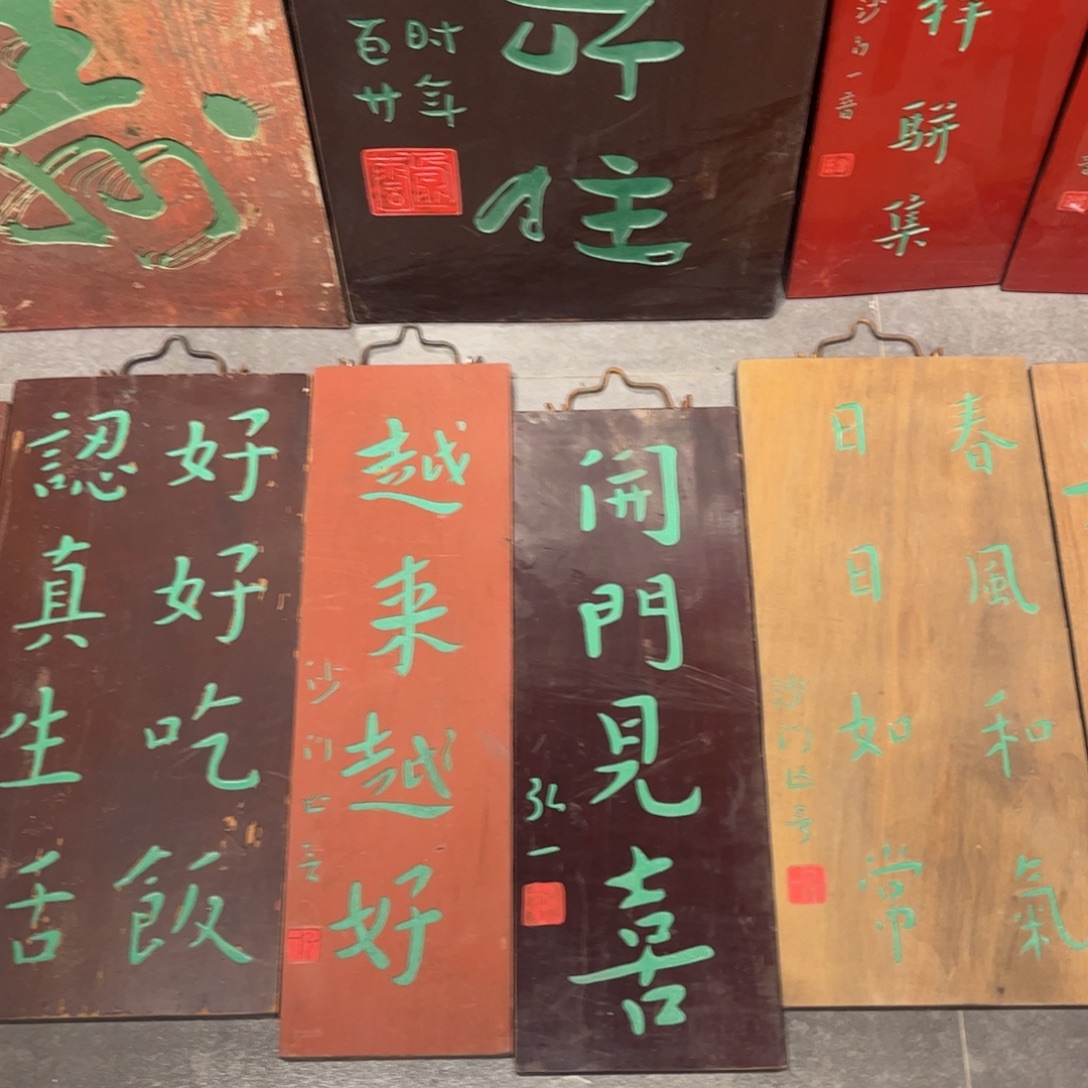 百廿
时年
住
祥駢集
沙門一音
好好吃飯
認真生活
越来越好
沙门
開門見喜
弘一
春風和氣
日日如常
沙门